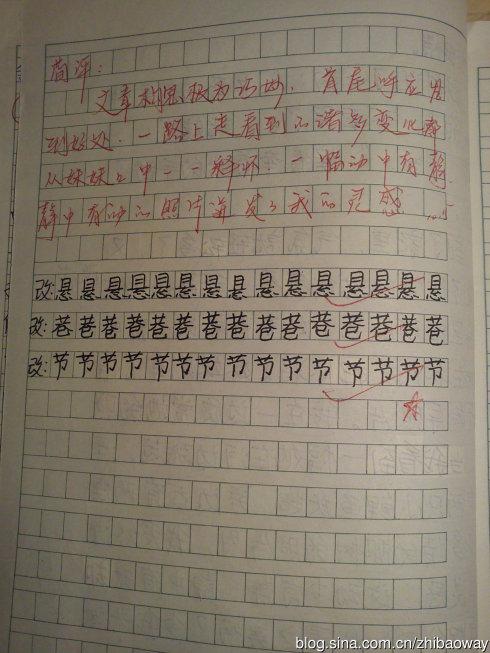 简评:
文章构思极为巧妙,首尾呼应恰
到好处。一路上走看到的诸多变化都
从妹妹口中一一释怀。一幅动中有静,
静中有动的照片激发了我的灵感
改:悬悬悬悬悬悬悬悬悬悬悬悬悬悬悬
改:巷巷巷巷巷巷巷巷巷巷巷巷巷巷巷
改:节节节节节节节节节节节节节节节
blog.sina.com.cn/zhibaoway